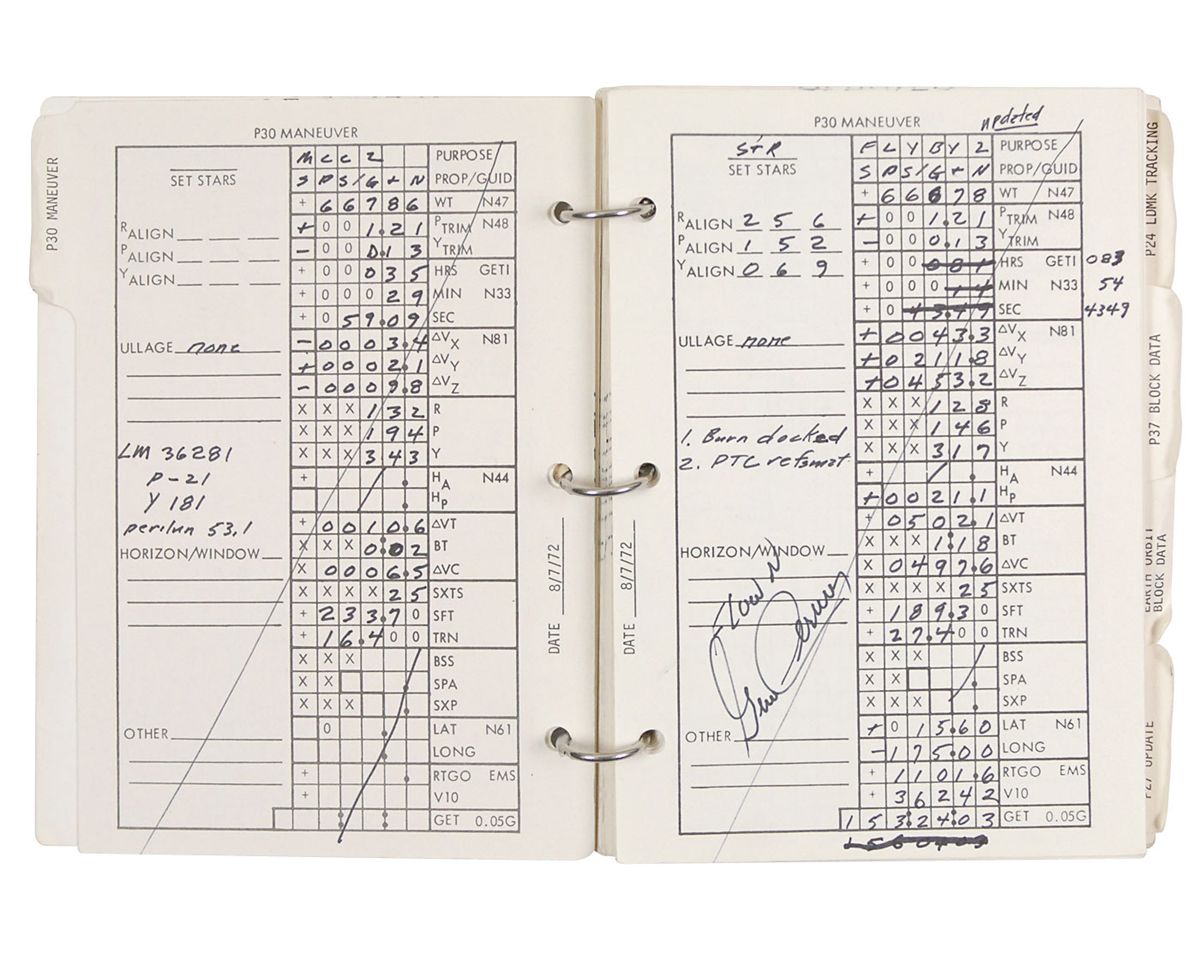 P30 MANEUVER
P30 MANEUVER
SET STARS
M C C 2 PURPOSE
S P S / G + N PROP/GUID
+ 6 6 7 8 6 WT N47
R ALIGN
+ 0 0 1.2 1 P TRIM N48
P ALIGN
- 0 0 0.1 3 Y TRIM
Y ALIGN
+ 0 0 0 3 5 HRS GETI
+ 0 0 0 2 9 MIN N33
+ 0 5 9.0 9 SEC
ULLAGE none
- 0 0 0 3.4 ΔVX N81
+ 0 0 0 2.1 ΔVY
- 0 0 0 9.8 ΔVZ
X X X 1 3 2 R
X X X 1 9 4 P
X X X 3 4 3 Y
LM 36281
P-21
Y 181
perilun 53.1
+ HA N44
HP
+ 0 0 1 0.6 ΔVT
X X X 0:0 2 BT
X 0 0 0 6.5 ΔVC
HORIZON/WINDOW
X X X X 2 5 SXTS
+ 2 3 3.7 0 SFT
+ 1 6.4 0 0 TRN
X X X BSS
X X SPA
X X X SXP
OTHER
0 LAT N61
LONG
+ RTGO EMS
+ V10
GET 0.05G
DATE 8/7/72
DATE 8/7/72
P30 MANEUVER
updated
S+R
SET STARS
F L Y B Y 2 PURPOSE
S P S / G + N PROP/GUID
+ 6 6 6 7 8 WT N47
R ALIGN 2 5 6
+ 0 0 1.2 1 P TRIM N48
P ALIGN 1 5 2
- 0 0 0.1 3 Y TRIM
Y ALIGN 0 6 9
+ 0 0 0 8 1 HRS GETI 083
+ 0 0 0 1 4 MIN N33 54
+ 0 4 3.4 9 SEC 4349
ULLAGE none
+ 0 0 4 3.3 ΔVX N81
+ 0 2 1 1.8 ΔVY
+ 0 4 5 3.2 ΔVZ
X X X 1 2 8 R
X X X 1 4 6 P
X X X 3 1 7 Y
1. Burn docked
2. PTC refsmat
+ HA N44
+ 0 0 2 1.1 HP
+ 0 5 0 2.1 ΔVT
X X X 1:1 8 BT
X 0 4 9 7.6 ΔVC
HORIZON/WINDOW
X X X X 2 5 SXTS
+ 1 8 9.3 0 SFT
+ 2 7.4 0 0 TRN
Flown
Gene Cernan
X X X BSS
X X SPA
X X X SXP
OTHER
+ 0 1 5.6 0 LAT N61
- 1 7 5.0 0 LONG
+ 1 1 0 1.6 RTGO EMS
+ 3 6 2 4 2 V10
1 5 3:2 4:0 3 GET 0.05G
P24 LDMK TRACKING
P37 BLOCK DATA
EARTH ORBIT
BLOCK DATA
P27 UPDATE